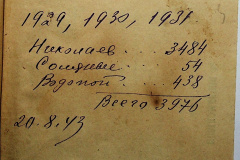 1929, 1930, 1931
Николаев . . . 3484
Соляные . . 54
Водопой . . 438
Всего 3976
20.8.43